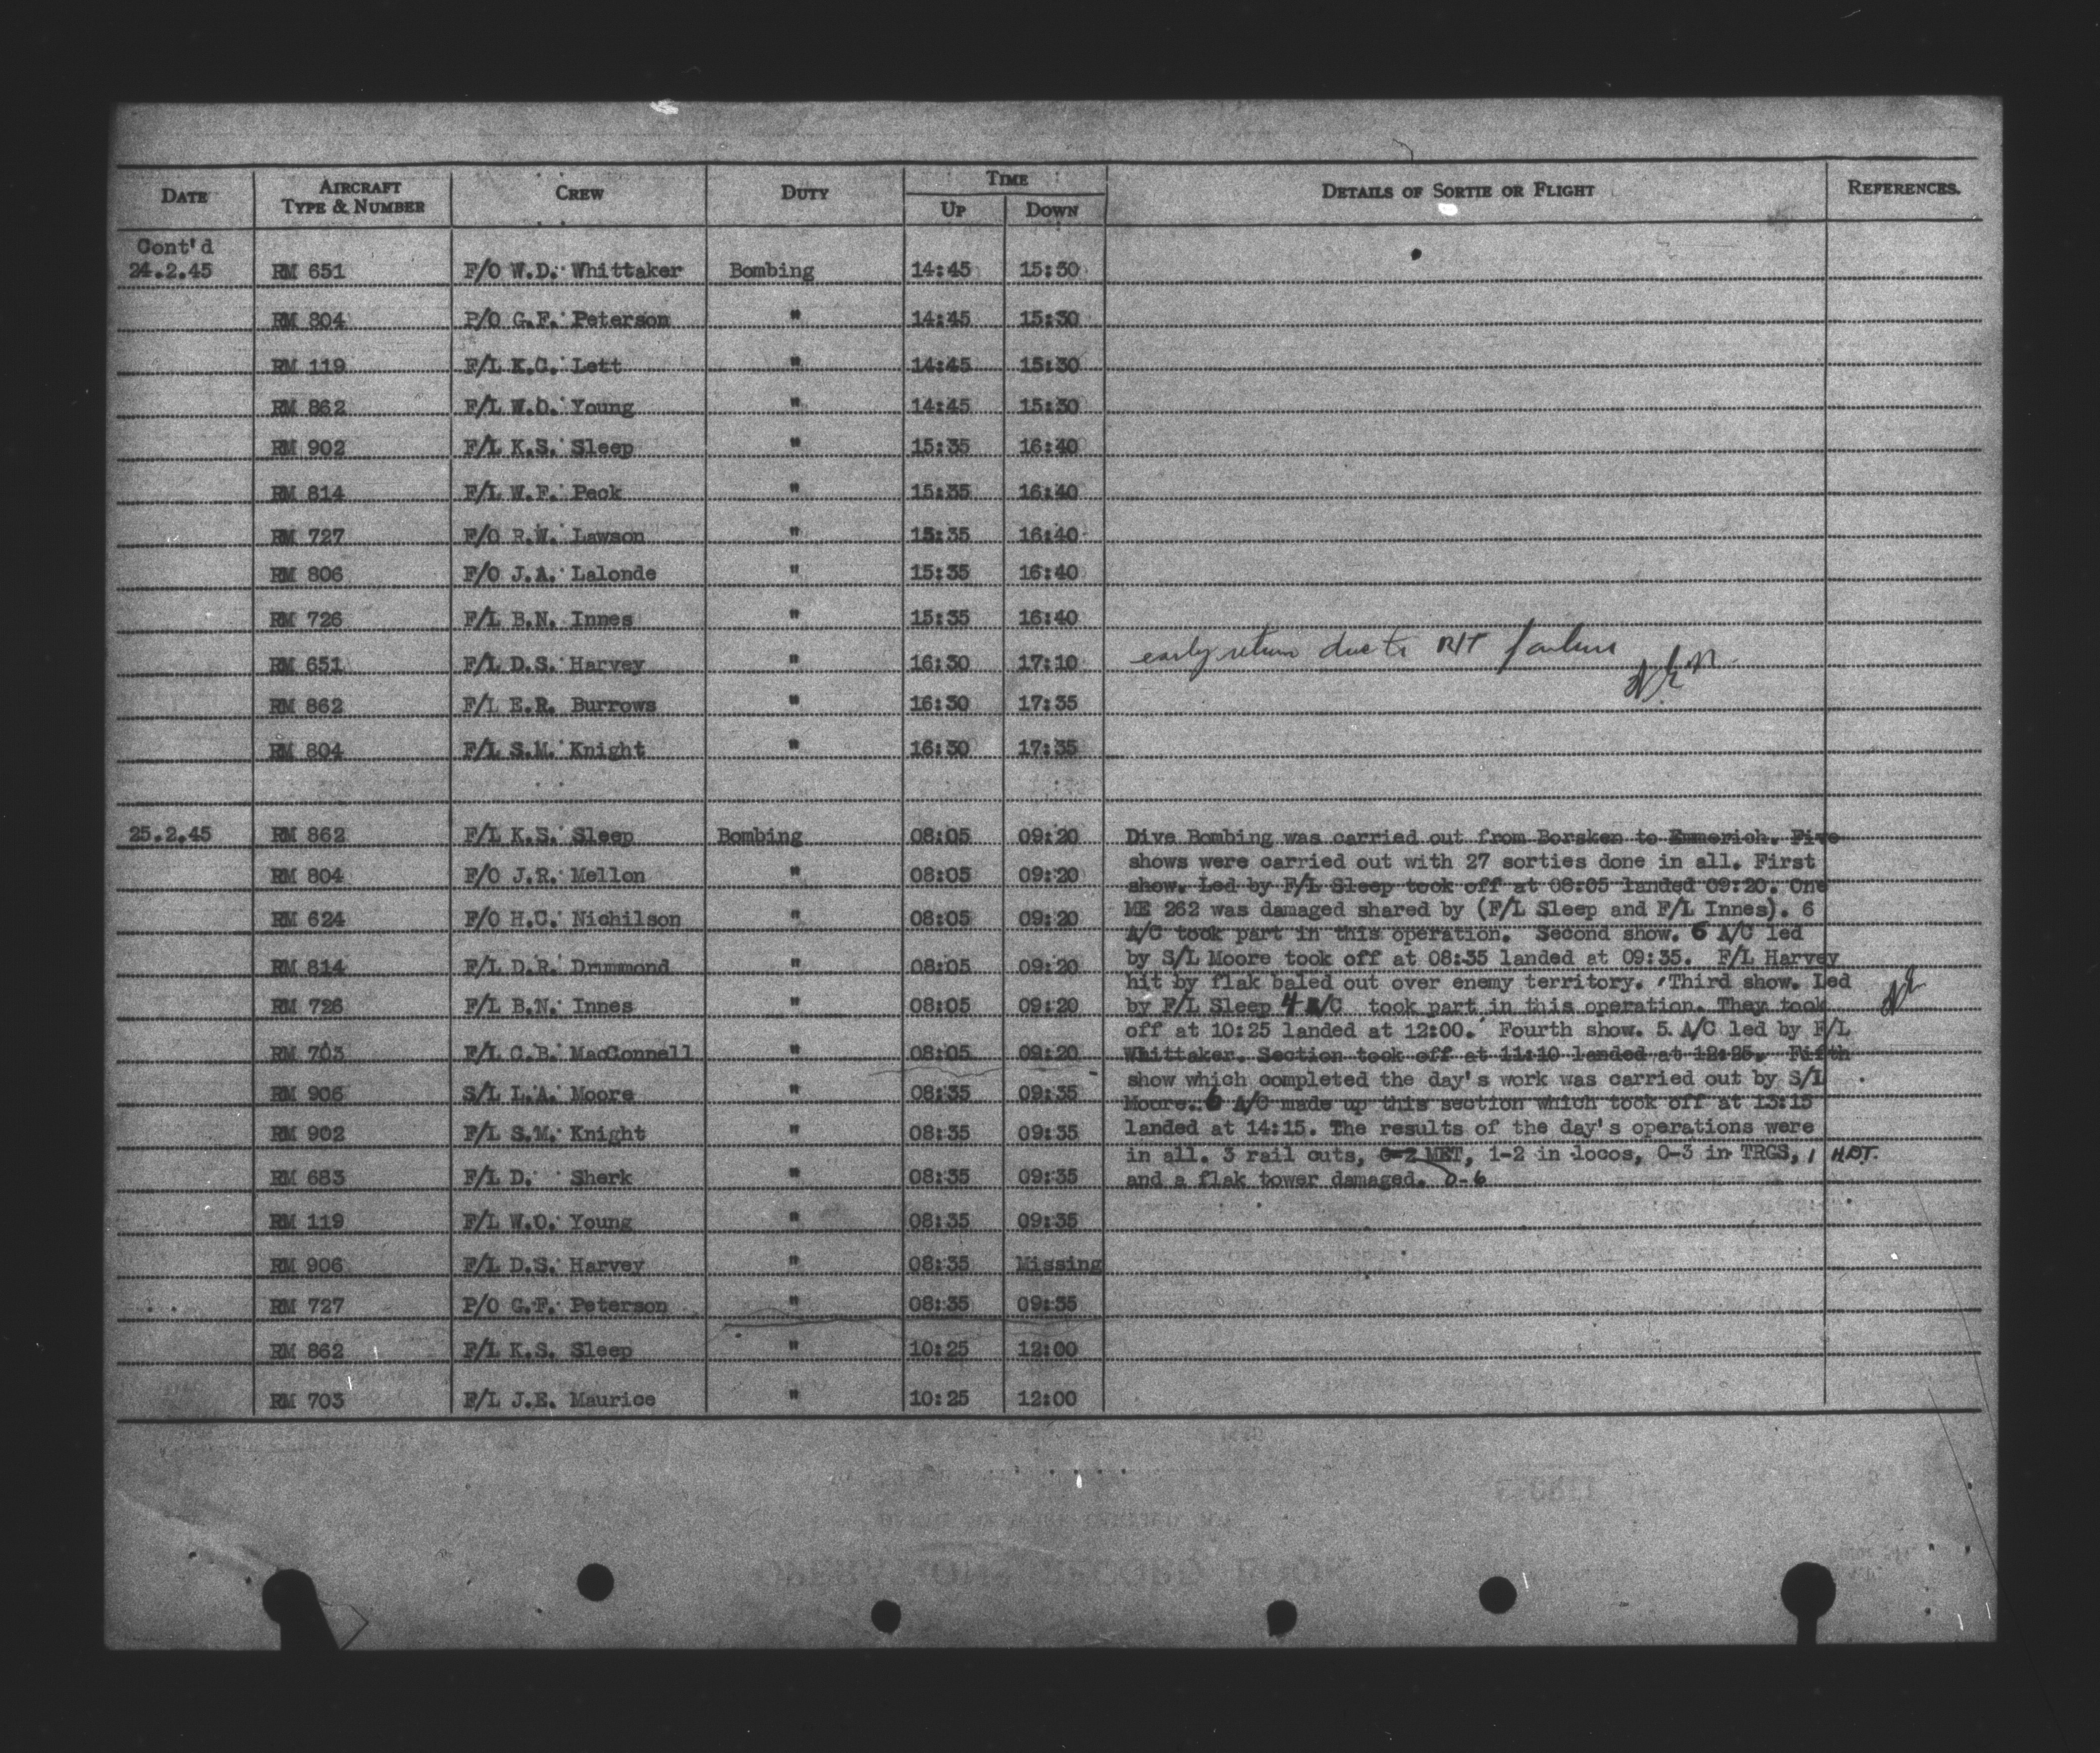 DATE AIRCRAFT TYPE & NUMBER CREW DUTY TIME UP DOWN DETAILS OF SORTIE OR FLIGHT REFERENCES.
Cont'd
24.2.45 RM 651 F/O W.D. Whittaker Bombing 14:45 15:30
RM 804 P/O G.F. Peterson " 14:45 15:30
RM 119 F/L K.C. Lett " 14:45 15:30
RM 862 F/L W.O. Young " 14:45 15:30
RM 902 F/L K.S. Sleep " 15:35 16:40
RM 814 F/L W.F. Peck " 15:35 16:40
RM 727 F/O R.W. Lawson " 15:35 16:40
RM 806 F/O J.A. Lalonde " 15:35 16:40
RM 726 F/L B.N. Innes " 15:35 16:40
RM 651 F/L D.S. Harvey " 16:30 17:10 early return due to R/T failure
RM 862 F/L E.R. Burrows " 16:30 17:35
RM 804 F/L S.M. Knight " 16:30 17:35
25.2.45 RM 862 F/L K.S. Sleep Bombing 08:05 09:20
RM 804 F/O J.R. Mellon " 08:05 09:20
RM 624 F/O H.C. Nichilson " 08:05 09:20
RM 814 F/L D.R. Drummond " 08:05 09:20
RM 726 F/L B.N. Innes " 08:05 09:20
RM 703 F/L C.B. MacConnell " 08:05 09:20
RM 906 S/L L.A. Moore " 08:35 09:35
RM 902 F/L S.M. Knight " 08:35 09:35
RM 683 F/L D. Sherk " 08:35 09:35
RM 119 F/L W.O. Young " 08:35 09:35
RM 906 F/L D.S. Harvey " 08:35 Missing
RM 727 P/O G.F. Peterson " 08:35 09:35
RM 862 F/L K.S. Sleep " 10:25 12:00
RM 703 F/L J.E. Maurice " 10:25 12:00
Dive Bombing was carried out from Borsken to Emmerich. Five
shows were carried out with 27 sorties done in all. First
show. Led by F/L Sleep took off at 08:05 landed 09:20. One
ME 262 was damaged shared by (F/L Sleep and F/L Innes). 6
A/C took part in this operation. Second show. 6 A/C led
by S/L Moore took off at 08:35 landed at 09:35. F/L Harvey
hit by flak baled out over enemy territory. Third show. Led
by F/L Sleep 4 A/C took part in this operation. They took
off at 10:25 landed at 12:00. Fourth show. 5 A/C led by F/L
Whittaker. Section took off at 11:10 landed at 12:25. Fifth
show which completed the day's work was carried out by S/L
Moore. 6 A/C made up this section which took off at 13:15
landed at 14:15. The results of the day's operations were
in all. 3 rail cuts, 0-2 MET, 1-2 in locos, 0-3 in TRGS, 1 HDT.
and a flak tower damaged. 0-6